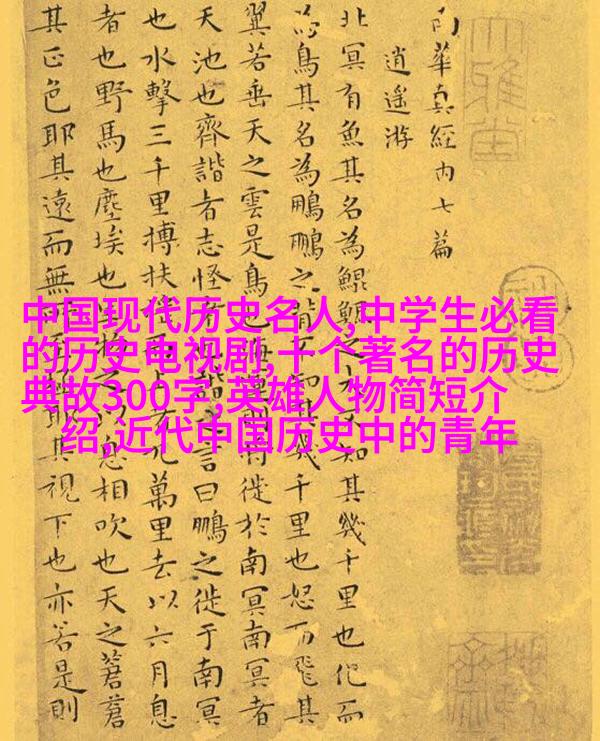 南華真經内七篇
逍遥游
北冥有魚其名為鯤鯤之大不知其幾千里也化而
為鳥其名為鵬鵬之背不知其幾千里也怒而飛其
翼若垂天之雲是鳥也海運則將徙於南冥南冥者
天池也齊諧者志怪者也諧之言曰鵬之徙于南冥
也水擊三千里搏扶摇而上者九萬里去以六月息
者也野馬也塵埃也生物之以息相吹也天之蒼蒼
其正色耶其遠而無所至極耶其視下也亦若是則
中国现代历史名人,中学生必看
的历史电视剧,十个著名的历史
典故300字,英雄人物简短介
绍,近代中国历史中的青年